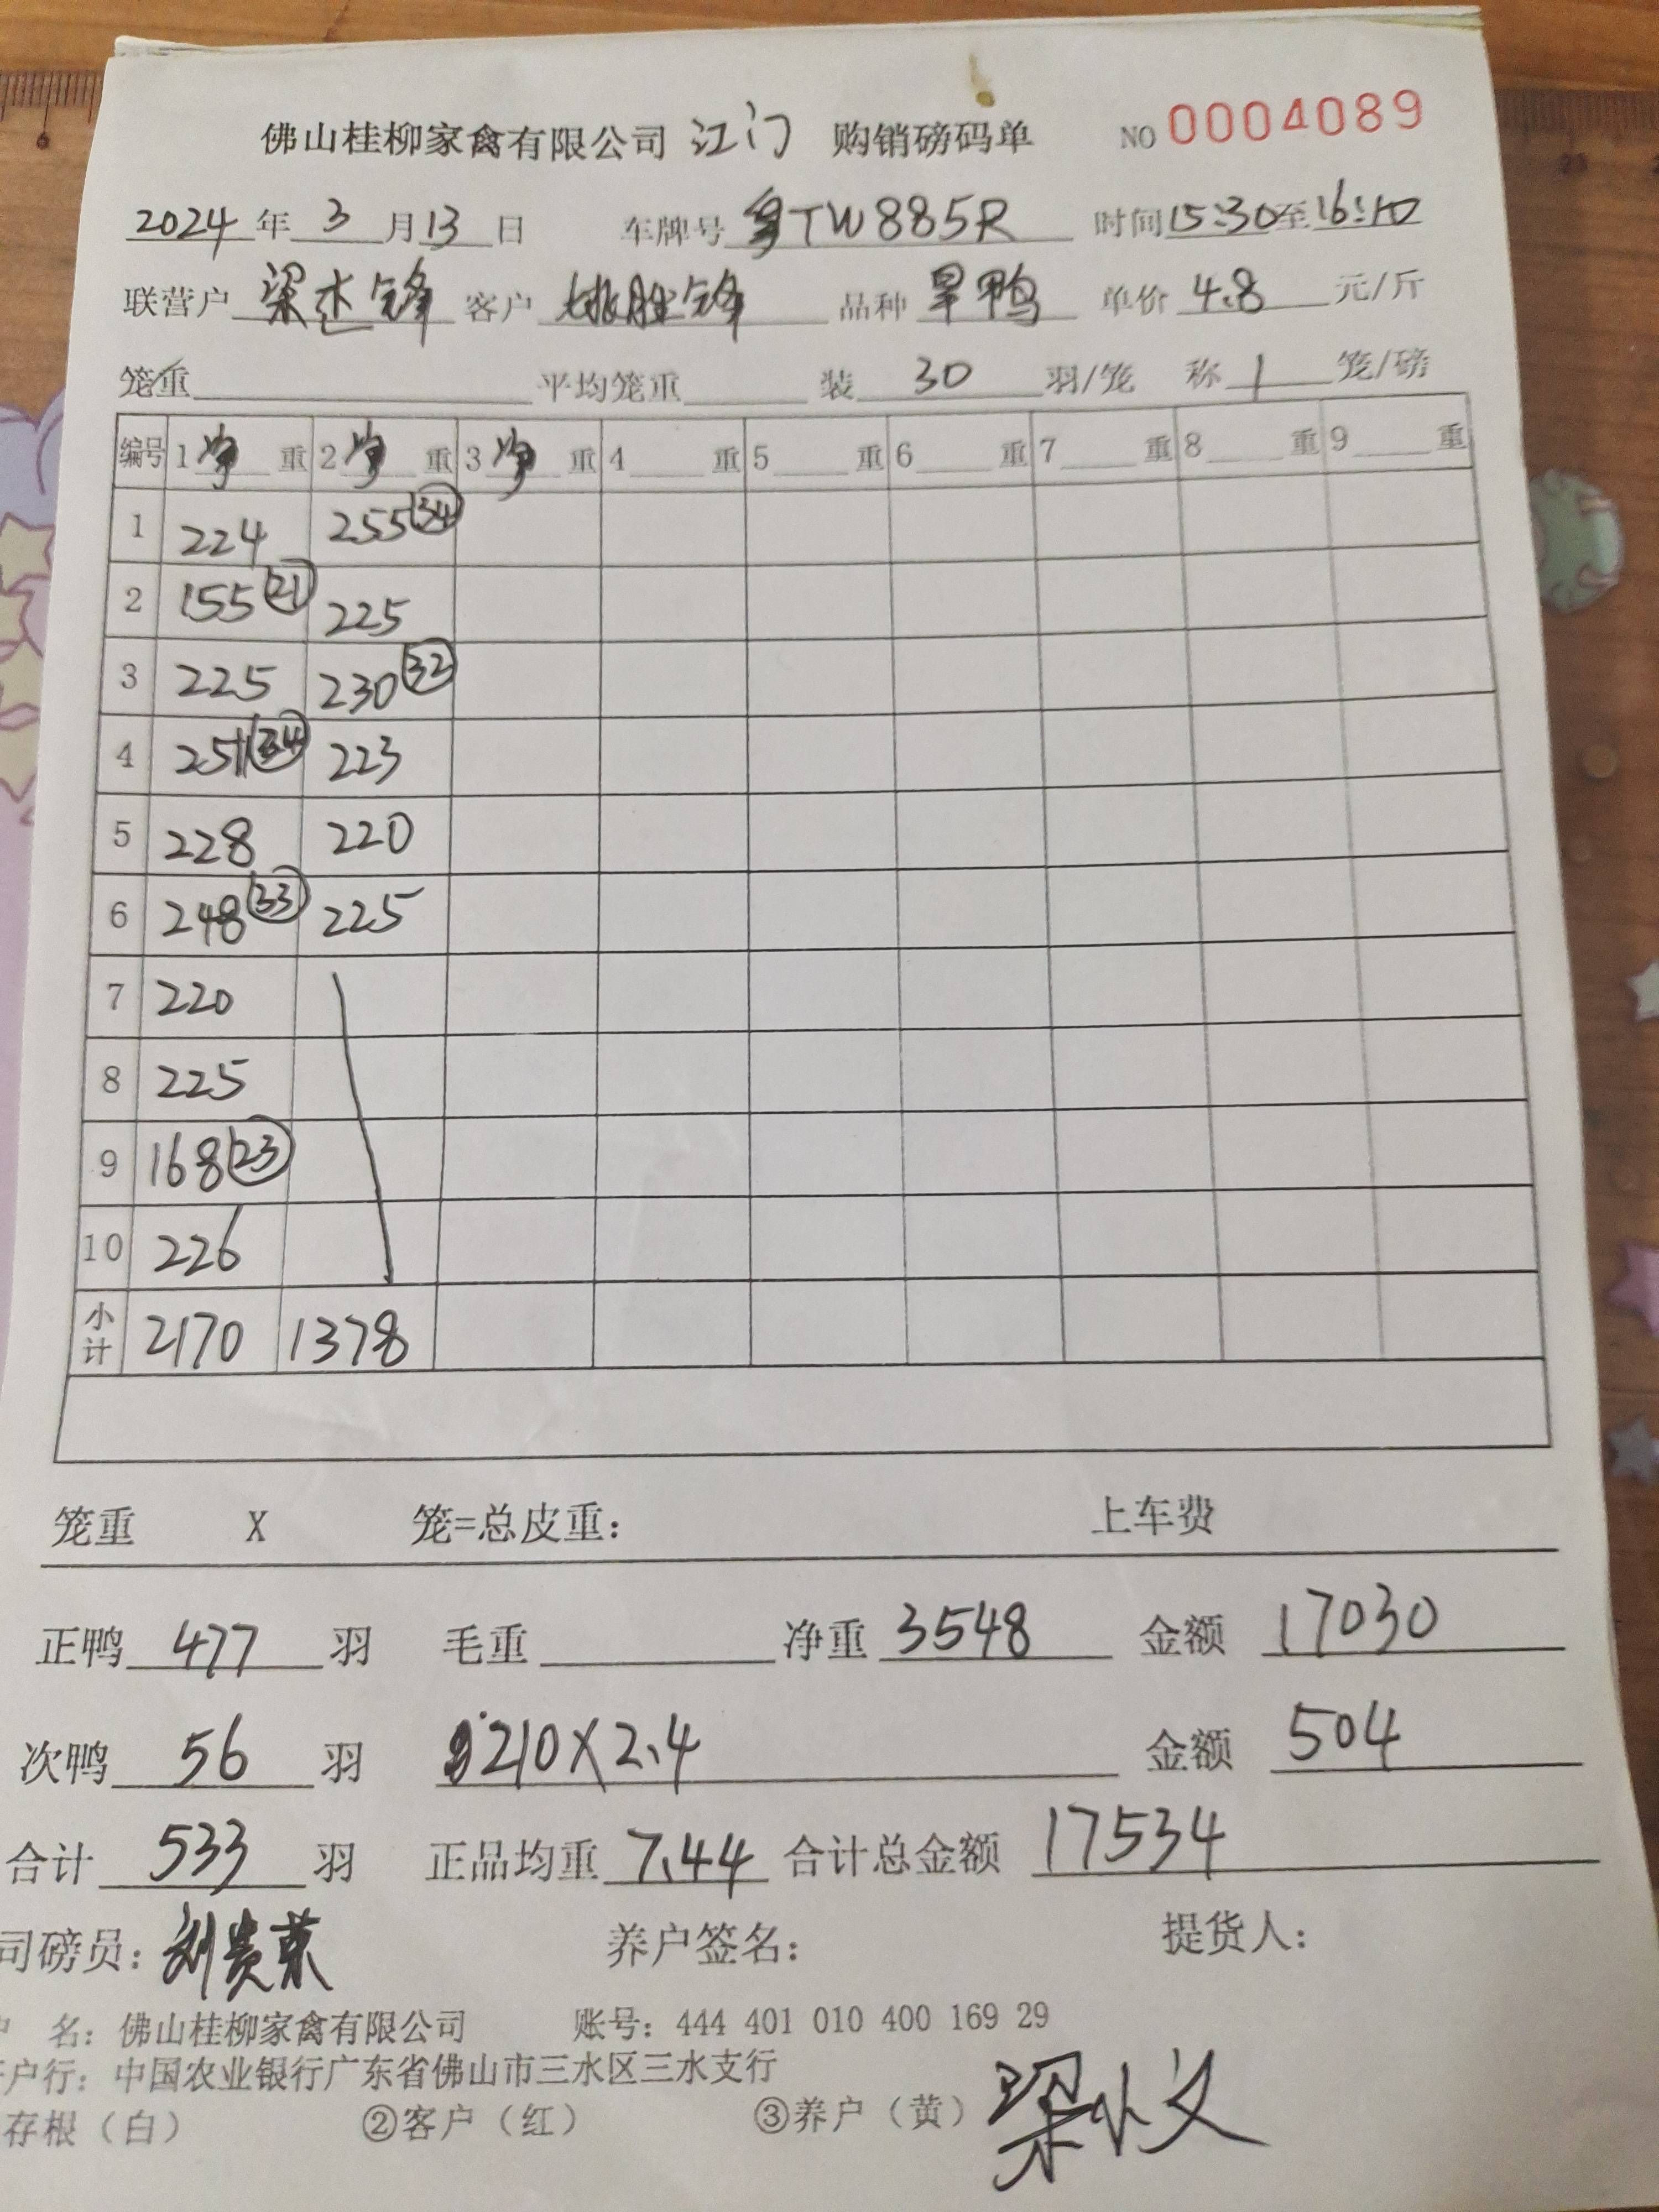 佛山桂柳家禽有限公司 江门 购销磅码单 NO 0004089
2024年3月13日 车牌号粤TW885R 时间15:30至16:10
联营户 梁杰锋 客户 姚胜锋 品种 旱鸭 单价 4.8 元/斤
笼重 平均笼重 装 30 羽/笼 称 1 笼/磅
编号 1净重 2净重 3净重 4 重 5 重 6 重 7 重 8 重 9 重
1 224 255 34
2 155 21 225
3 225 230 32
4 251 34 223
5 228 220
6 248 33 225
7 220
8 225
9 168 23
10 226
小计 2170 1378
笼重 X 笼=总皮重: 上车费
正鸭 477 羽 毛重 净重 3548 金额 17030
次鸭 56 羽 210X2.4 金额 504
合计 533 羽 正品均重 7.44 合计总金额 17534
司磅员: 刘贵荣 养户签名: 提货人:
名: 佛山桂柳家禽有限公司 账号: 444 401 010 400 169 29
户行: 中国农业银行广东省佛山市三水区三水支行
存根（白） ②客户（红） ③养户（黄）